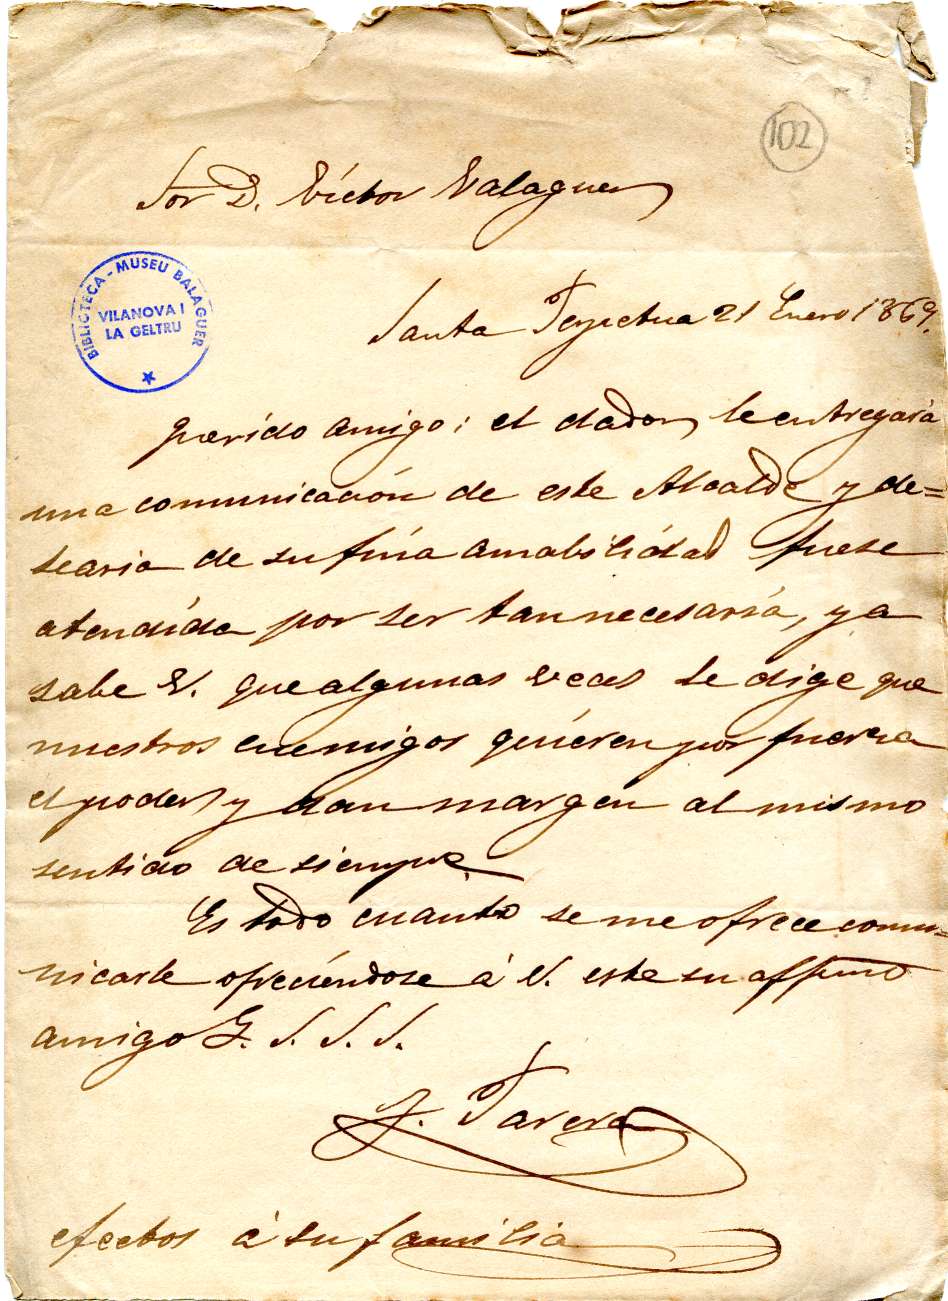 102
Sor D. Víctor Valaguer
BIBLIOTECA - MUSEU BALAGUER
VILANOVA I
LA GELTRU
Santa Perpetua 21 Enero 1869.
Querido amigo: el dador, le entregará
una comunicación de este Alcalde y de=
searia de su fina amabilidad fuese
atendida por ser tan necesaria, ya
sabe V. que algunas veces se dige que
nuestros enemigos quieren por fuerza
el poder y dan margen al mismo
sentido de siempre.
Es todo cuanto se me ofrece comu=
nicarle ofreciéndose á V. este su affmo
amigo Q. S. S. S.
J. Tarera
efectos á su familia